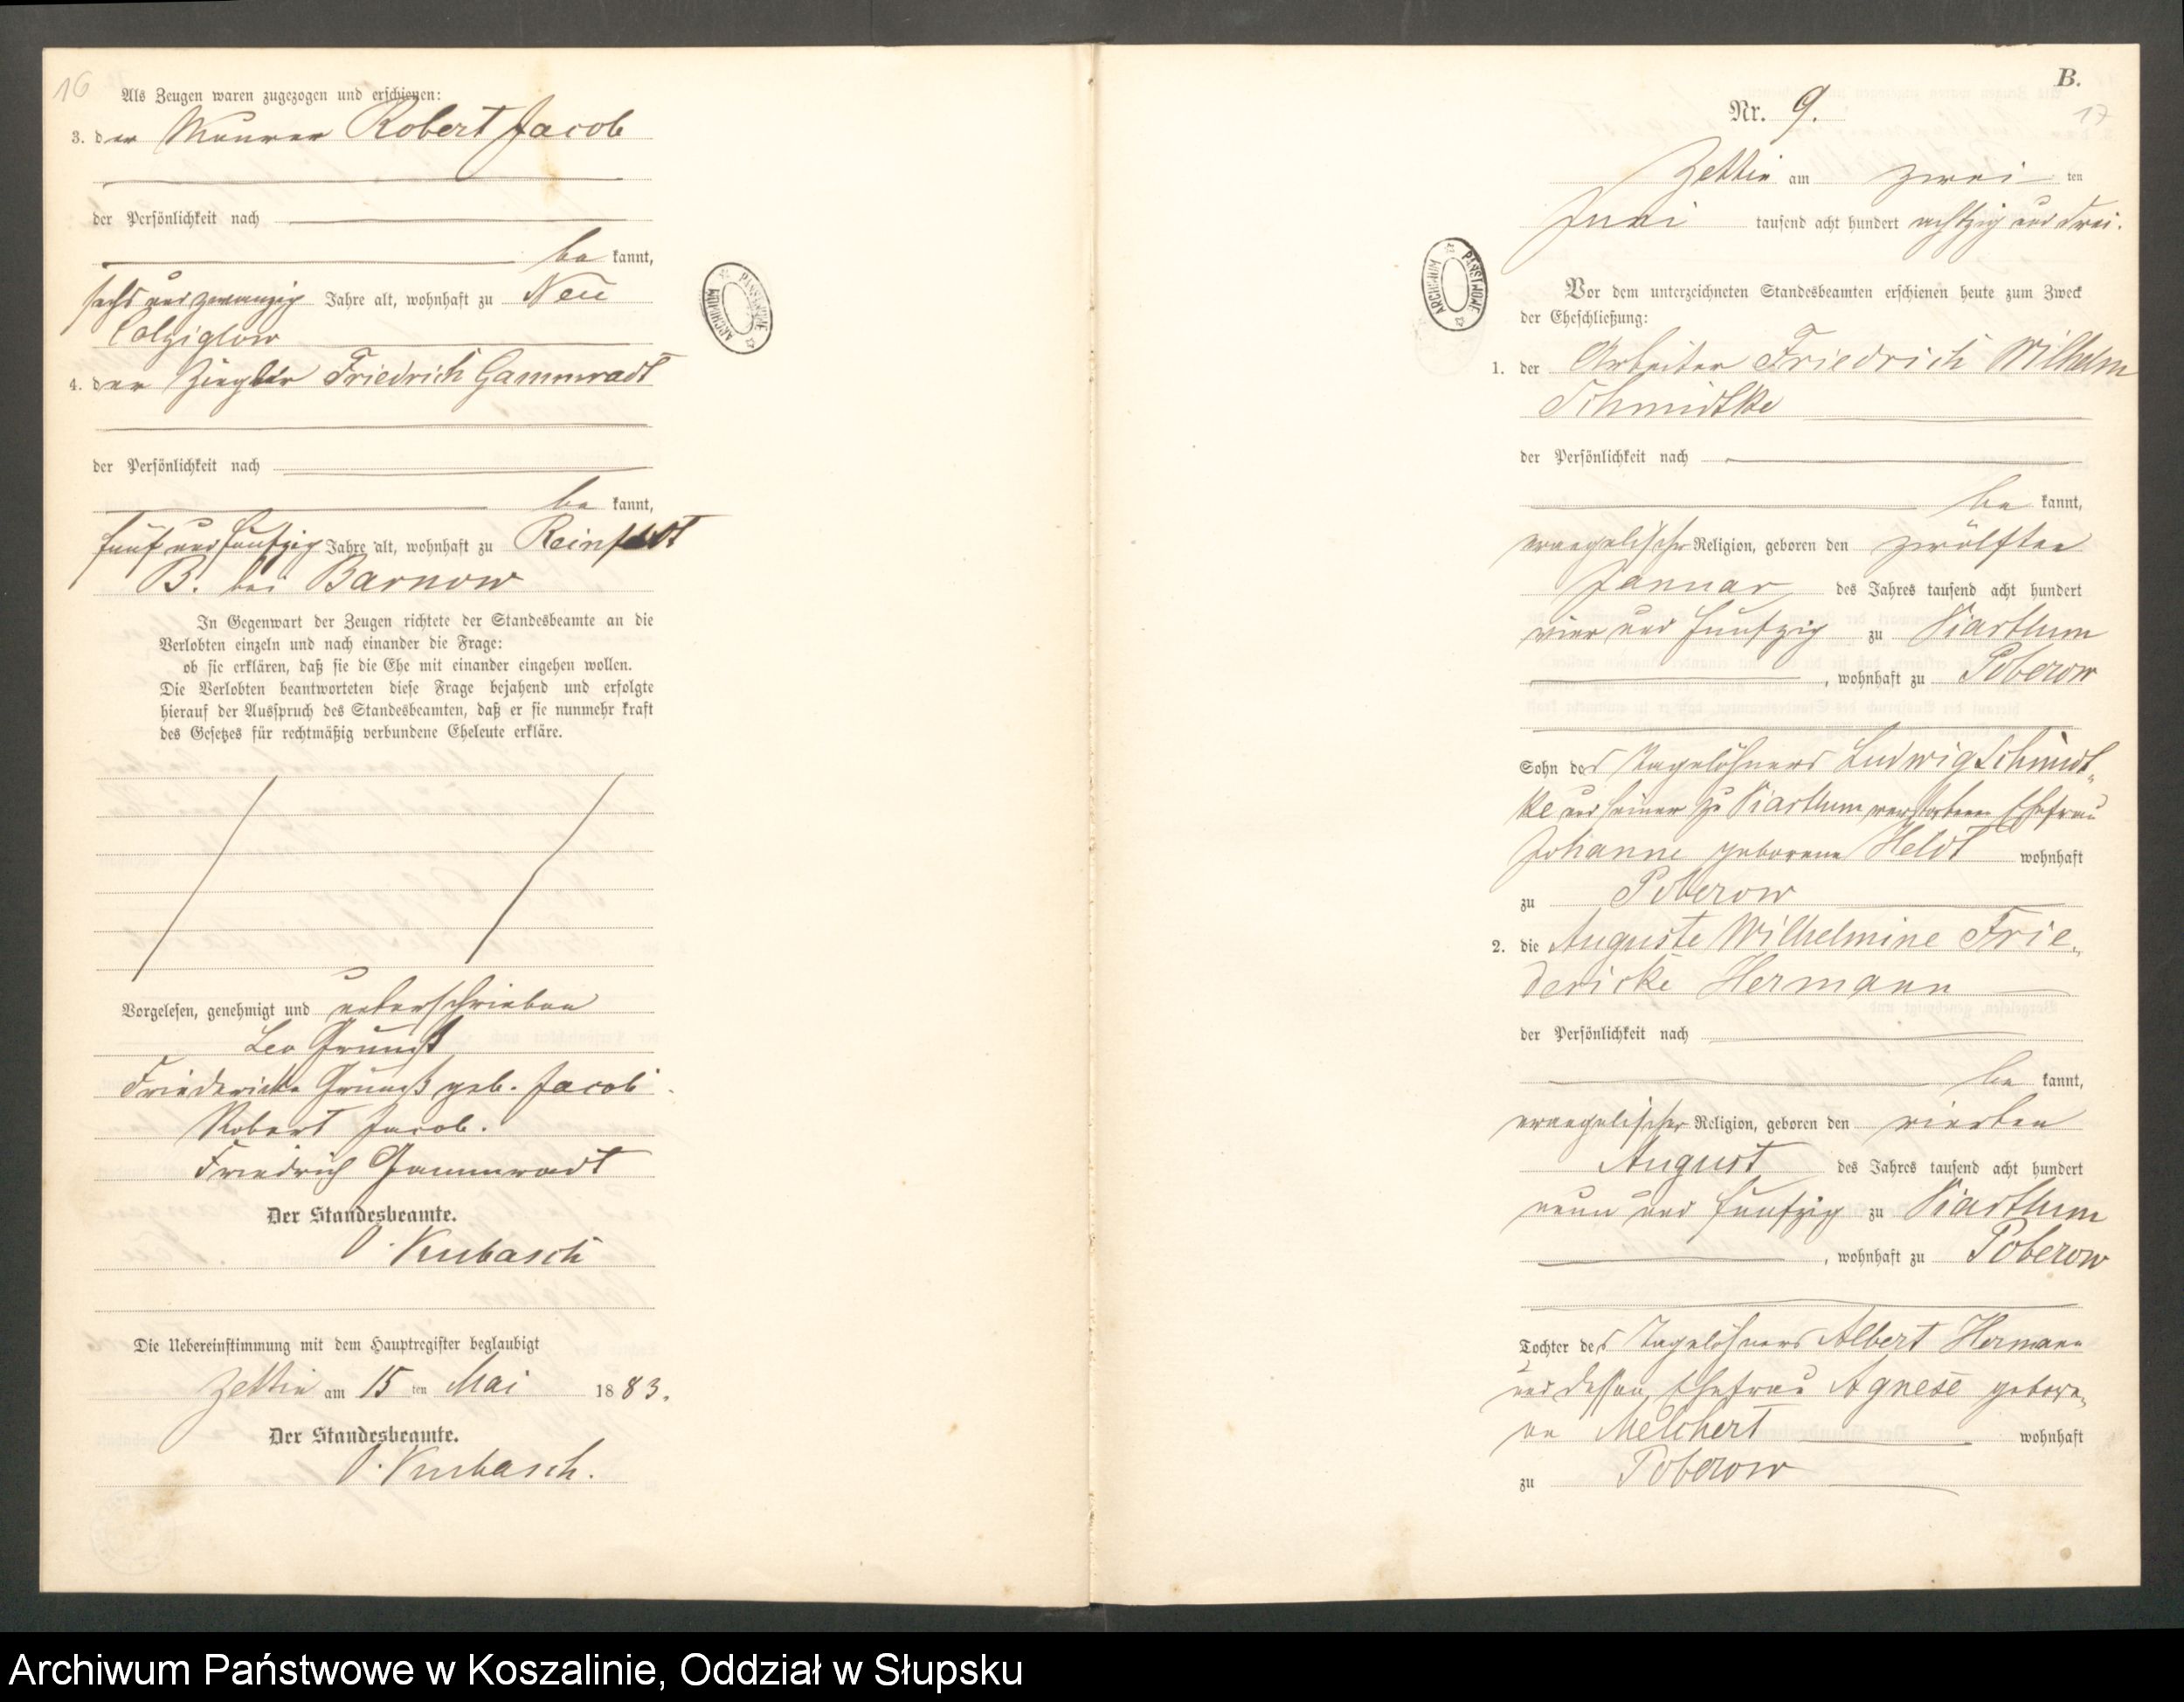 16
Als Zeugen waren zugezogen und erschienen:
3. der Maurer Robert Jacob
der Persönlichkeit nach
be kannt,
sechs und zwanzig Jahre alt, wohnhaft zu Neu
Colziglow
4. der Ziegler Friedrich Gammradt
der Persönlichkeit nach
be kannt,
fünf und fünfzig Jahre alt, wohnhaft zu Reinfeldt
B. bei Barnow
In Gegenwart der Zeugen richtete der Standesbeamte an die
Verlobten einzeln und nach einander die Frage:
ob sie erklären, daß sie die Ehe mit einander eingehen wollen.
Die Verlobten beantworteten diese Frage bejahend und erfolgte
hierauf der Ausspruch des Standesbeamten, daß er sie nunmehr kraft
des Gesetzes für rechtmäßig verbundene Eheleute erkläre.
Vorgelesen, genehmigt und unterschrieben
Leo
Friedericke geb. Jacob
Robert Jacob.
Friedrich Gammradt
Der Standesbeamte.
Kubasch
Die Uebereinstimmung mit dem Hauptregister beglaubigt
Zettin am 15 ten Mai 1883.
Der Standesbeamte.
Kubasch.
ARCHIWUM PAŃSTWOWE
B.
17
Nr. 9.
Zettin am zwei ten
Juni tausend acht hundert achtzig und drei.
ARCHIWUM PAŃSTWOWE
Vor dem unterzeichneten Standesbeamten erschienen heute zum Zweck
der Eheschließung:
1. der Arbeiter Friedrich Wilhelm
Schmidtke
der Persönlichkeit nach
be kannt,
evangelischer Religion, geboren den zwölften
Januar des Jahres tausend acht hundert
vier und fünfzig zu Viartlum
, wohnhaft zu Poberow
Sohn des Tagelöhners Ludwig Schmidt-
ke und seiner zu Viartlum verstorbenen Ehefrau
Johanne geborene Heldt wohnhaft
zu Poberow
2. die Auguste Wilhelmine Frie-
dericke Hermann
der Persönlichkeit nach
be kannt,
evangelischer Religion, geboren den vierten
August des Jahres tausend acht hundert
neun und fünfzig zu Viartlum
, wohnhaft zu Poberow
Tochter des Tagelöhners Albert Hermann
und dessen Ehefrau Agnese gebore-
ne Melchert wohnhaft
zu Poberow
Archiwum Państwowe w Koszalinie, Oddział w Słupsku